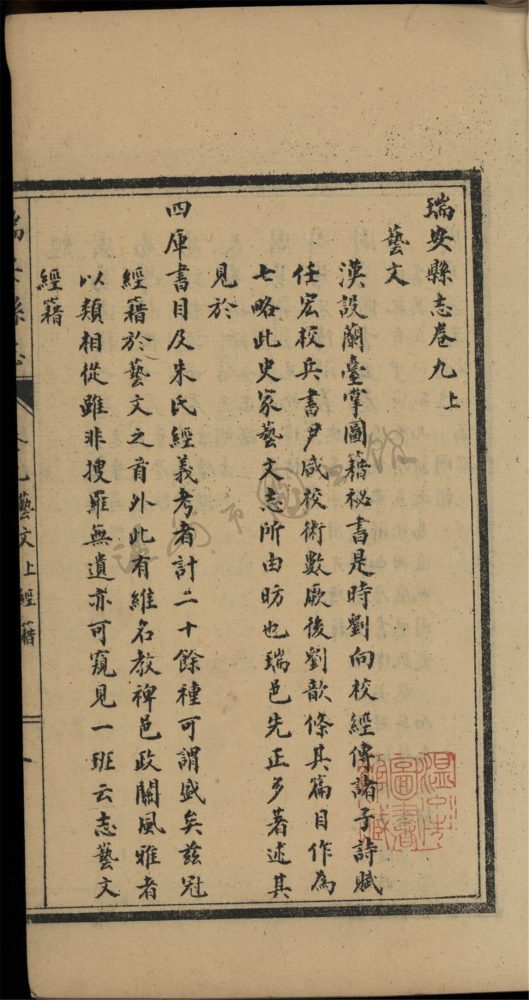 瑞安縣志卷九上
藝文
漢設蘭臺掌圖籍祕書是時劉向校經傳諸子詩賦
任宏校兵書尹咸校術數厥後劉歆條其篇目作為
七略此史家藝文志所由昉也瑞邑先正多著述其
見於
四庫書目及朱氏經義考者計二十餘種可謂盛矣茲冠
經籍於藝文之首外此有維名教裨邑政關風雅者
以類相從雖非搜羅無遺亦可窺見一班云志藝文
經籍
瑞安縣志
卷九藝文上經籍
一